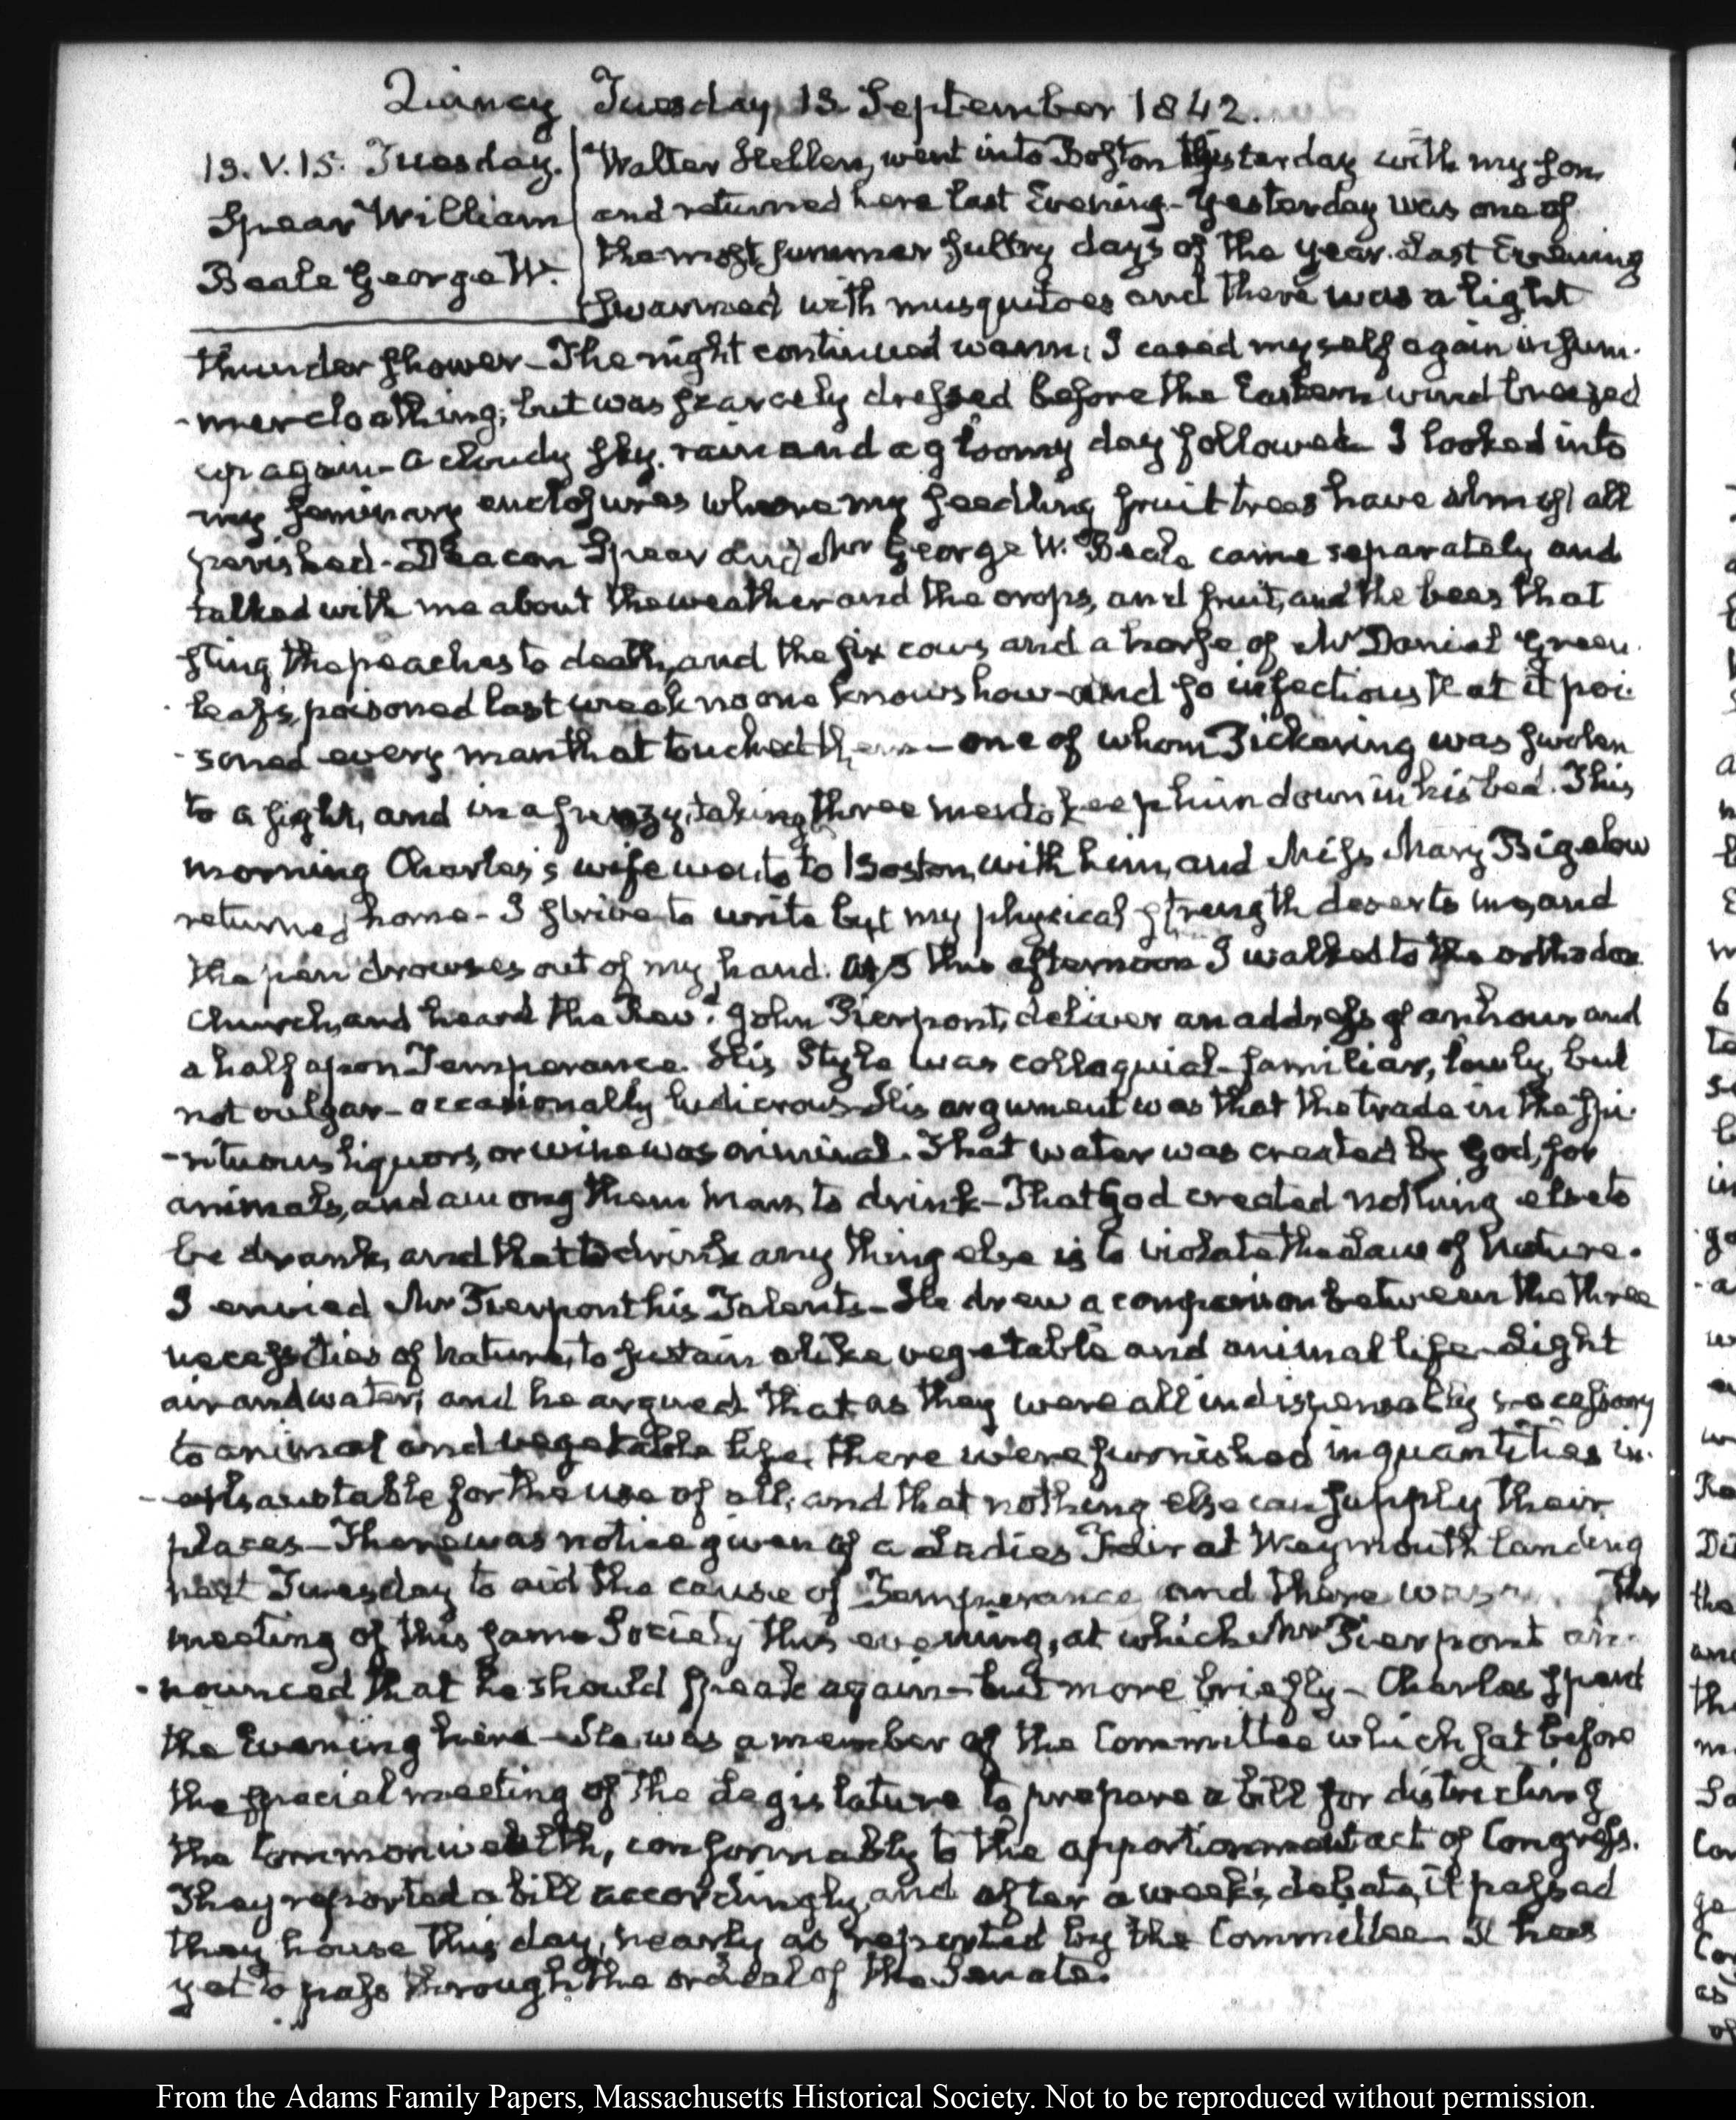 Quincy Tuesday 13 September 1842.
13. V. 15. Tuesday.
Spear William
Beale George W.
Walter Hellen, went into Boston yesterday with my son
and returned here last Evening - Yesterday was one of
the most summer sultry days of the year. Last Evening
swarmed with musquitoes and there was a light
thunder shower - The night continued warm; I cased myself again in sum-
-mer cloathing; but was scarcely dressed before the Eastern wind breezed
up again - a cloudy sky. rain and a gloomy day followed I looked into
my seminary enclosures where my seedling fruit trees have almost all
perished - Deacon Spear and Mr George W. Beale came separately and
talked with me about the weather and the crops, and fruit, and the bees that
sting the peaches to death, and the six cows and a horse of Mr Daniel Green-
leaf's, poisoned last week no one knows how - and so infectious that it poi-
-soned every man that touched them - one of whom Pickering was swolen
to a sight, and in a frenzy, taking three men to keep him down in his bed. This
morning Charles's wife went to Boston, with him, and Miss Mary Bigelow
returned home - I strive to write but my physical strength deserts me, and
the pen drowses out of my hand. At 3 this afternoon I walked to the orthodox
Church, and heard the Revd. John Pierpont, deliver an address of an hour and
a half upon Temperance. His Style was colloquial - familiar, lowly, but
not vulgar - occasionally ludicrous - His argument was that the trade in the spi-
-rituous liquors, or wine was criminal. That water was created by God, for
animals, and among them Man, to drink - That God created nothing else to
be drank, and that to drink any thing else is to violate the Law of Nature.
I envied Mr Pierpont his Talents - He drew a comparison between the three
necessities of nature, to sustain alike vegetable and animal life - Light
air and water; and he argued that as they were all indispensably necessary
to animal and vegetable life, there were furnished in quantities in-
-exhaustable for the use of all; and that nothing else can supply their
places - There was notice given of a Ladies Fair at Weymouth landing
next Tuesday to aid the cause of Temperance and there was
meeting of this same Society this evening, at which Mr Pierpont an-
-nounced that he should speak again - but more briefly - Charles spent
the Evening here - He was a member of the Committee which sat before
the special meeting of the Legislature to prepare a bill for districting
the Commonwealth, conformably to the apportionment act of Congress.
They reported a bill accordingly, and after a week's debate, it passed
they house this day, nearly as reported by the Committee - It has
yet to pass through the ordeal of the Senate.
From the Adams Family Papers, Massachusetts Historical Society. Not to be reproduced without permission.